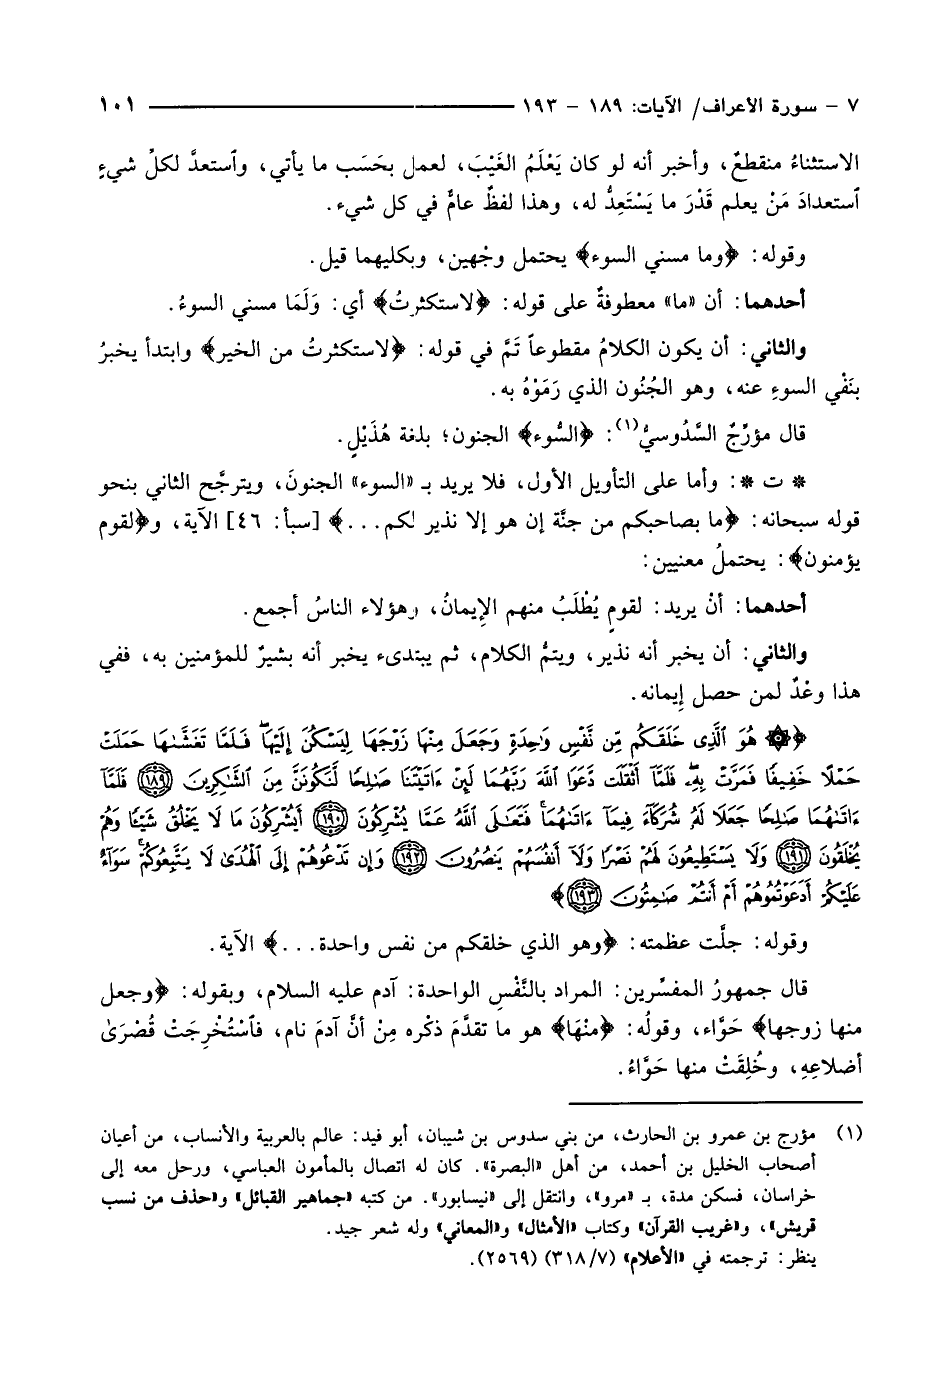 ٧ - سورة الأعراف/ الآيات: ١٨٩ - ١٩٣ ١٠١
الاستثناءُ منقطعٌ، وأخبر أنه لو كان يَعْلَمُ الغَيْبَ، لعمل بحَسَب ما يأتي، وٱستعدَّ لكلِّ شيءٍ
ٱستعدادَ مَنْ يعلم قَدْرَ ما يَسْتَعِدُّ له، وهذا لفظٌ عامٌّ في كل شيء.
وقوله: ﴿وما مسني السوء﴾ يحتمل وجْهين، وبكليهما قيل.
أحدهما: أن «ما» معطوفةٌ على قوله: ﴿لاستكثرتُ﴾ أي: وَلَمَا مسني السوءُ.
والثاني: أن يكون الكلامُ مقطوعاً تَمَّ في قوله: ﴿لاستكثرتُ من الخير﴾ وابتدأ يخبرُ
بنَفْي السوءِ عنه، وهو الجُنُون الذي رَمَوْهُ به.
قال مؤرِّجٌ السَّدُوسيُّ(١): ﴿السُّوء﴾ الجنون؛ بلغة هُذَيْلٍ.
* ت *: وأما على التأويل الأول، فلا يريد بـ «السوء» الجنونَ، ويترجَّح الثاني بنحو
قوله سبحانه: ﴿ما بصاحبكم من جنَّة إن هو إلا نذير لكم...﴾ [سبأ: ٤٦] الآية، و﴿لقوم
يؤمنون﴾: يحتملُ معنيين:
أحدهما: أنْ يريد: لقومٍ يُطْلَبُ منهم الإِيمانُ، وهؤلاء الناسُ أجمع.
والثاني: أن يخبر أنه نذير، ويتمُّ الكلام، ثم يبتدىء يخبر أنه بشيرٌ للمؤمنين به، ففي
هذا وعْدٌ لمن حصل إِيمانه.
﴿۞ هُوَ ٱلَّذِى خَلَقَكُم مِّن نَّفْسٍ وَٰحِدَةٍ وَجَعَلَ مِنْهَا زَوْجَهَا لِيَسْكُنَ إِلَيْهَا ۖ فَلَمَّا تَغَشَّىٰهَا حَمَلَتْ
حَمْلًا خَفِيفًا فَمَرَّتْ بِهِۦ ۖ فَلَمَّآ أَثْقَلَت دَّعَوَا ٱللَّهَ رَبَّهُمَا لَئِنْ ءَاتَيْتَنَا صَٰلِحًا لَّنَكُونَنَّ مِنَ ٱلشَّٰكِرِينَ ﴿١٨٩﴾ فَلَمَّآ
ءَاتَىٰهُمَا صَٰلِحًا جَعَلَا لَهُۥ شُرَكَآءَ فِيمَآ ءَاتَىٰهُمَا ۚ فَتَعَٰلَى ٱللَّهُ عَمَّا يُشْرِكُونَ ﴿١٩٠﴾ أَيُشْرِكُونَ مَا لَا يَخْلُقُ شَيْـًٔا وَهُمْ
يُخْلَقُونَ ﴿١٩١﴾ وَلَا يَسْتَطِيعُونَ لَهُمْ نَصْرًا وَلَآ أَنفُسَهُمْ يَنصُرُونَ ﴿١٩٢﴾ وَإِن تَدْعُوهُمْ إِلَى ٱلْهُدَىٰ لَا يَتَّبِعُوكُمْ ۚ سَوَآءٌ
عَلَيْكُمْ أَدَعَوْتُمُوهُمْ أَمْ أَنتُمْ صَٰمِتُونَ ﴿١٩٣﴾﴾
وقوله: جلَّت عظمته: ﴿وهو الذي خلقكم من نفس واحدة...﴾ الآية.
قال جمهورُ المفسِّرين: المراد بالنَّفْسِ الواحدة: آدم عليه السلام، وبقوله: ﴿وجعل
منها زوجها﴾ حَوَّاء، وقولُه: ﴿منْهَا﴾ هو ما تقدَّمَ ذكْره مِنْ أنَّ آدمَ نام، فٱسْتُخْرِجَتْ قُصْرَىٰ
أضلاعِهِ، وخُلِقَتْ منها حَوَّاءُ.
(١) مؤرج بن عمرو بن الحارث، من بني سدوس بن شيبان، أبو فيد: عالم بالعربية والأنساب، من أعيان
أصحاب الخليل بن أحمد، من أهل «البصرة». كان له اتصال بالمأمون العباسي، ورحل معه إلى
خراسان، فسكن مدة، بـ «مرو»، وانتقل إلى «نيسابور». من كتبه «جماهير القبائل» و«حذف من نسب
قريش»، و«غريب القرآن» وكتاب «الأمثال» و«المعاني» وله شعر جيد.
ينظر: ترجمته في «الأعلام» (٣١٨/٧) (٢٥٦٩).